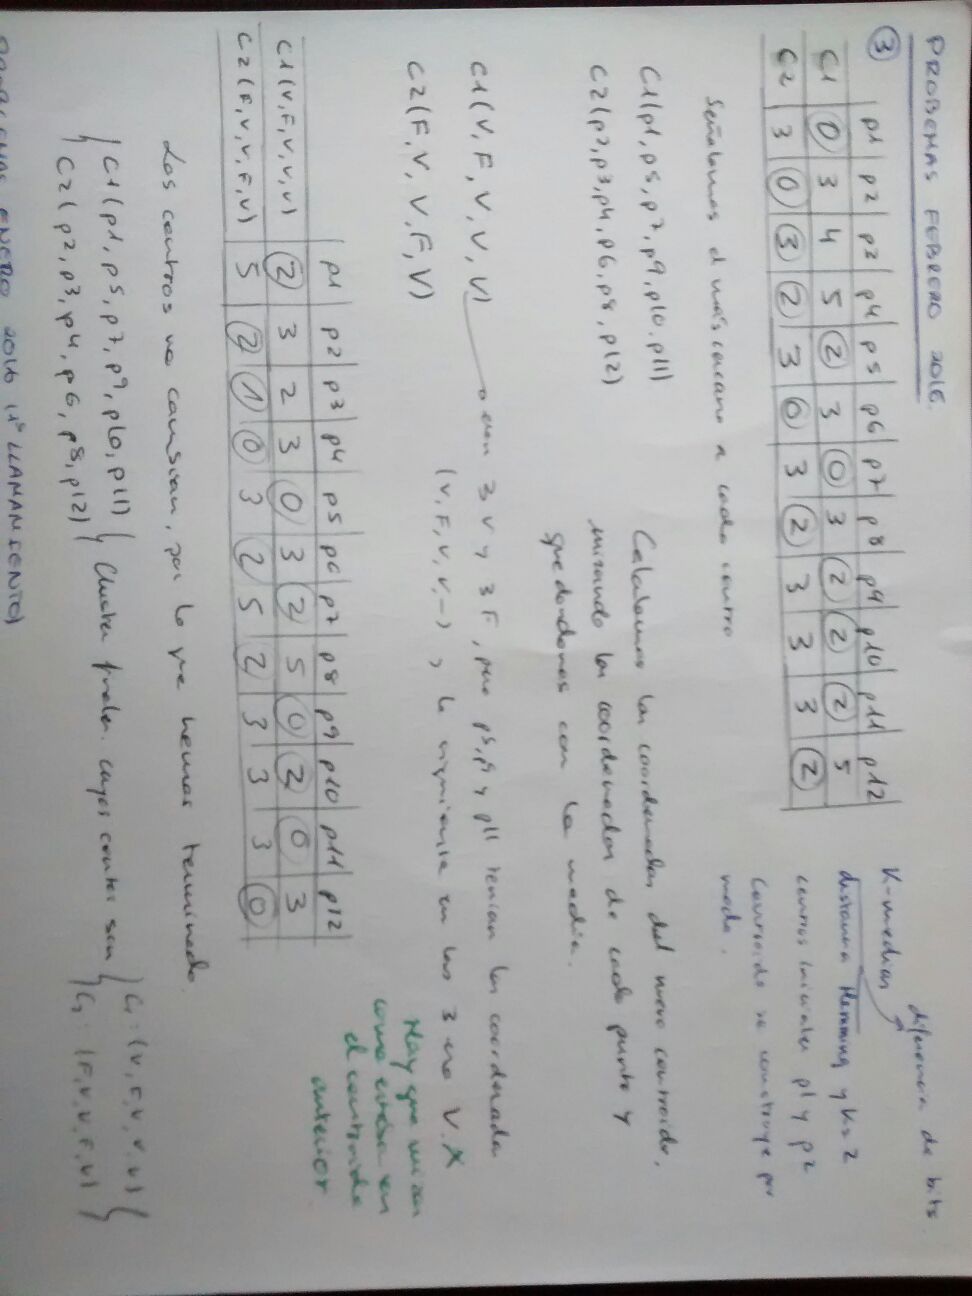 PROBEMAS FEBRERO 2016.
diferencia de bits
3
p1 p2 p3 p4 p5 p6 p7 p8 p9 p10 p11 p12
C1 0 3 4 5 2 3 0 3 2 2 2 5
C2 3 0 3 2 3 0 3 2 3 3 3 2
K-medias
distancia Hemming y K=2
centros iniciales p1 y p2
Centroide se construye por
moda.
Señalamos el más cercano a cada centro
C1(p1, p5, p7, p9, p10, p11)
C2(p2, p3, p4, p6, p8, p12)
Calculamos las coordenadas del nuevo centroide,
mirando las coordenadas de cada punto y
quedandonos con la media.
C1(V, F, V, V, V) 3 V y 3 F, pero p5, p9 y p11 tenian las coordenada
(V, F, V, V, -), la siguiente en las 3 era V. X
C2(F, V, V, F, V)
Hay que mirar
como estaba en
el centroide
anterior
p1 p2 p3 p4 p5 p6 p7 p8 p9 p10 p11 p12
C1(V,F,V,V,V) 2 3 2 3 0 3 2 5 0 2 0 3
C2(F,V,V,F,V) 5 2 1 0 3 2 5 2 3 3 3 0
Los centros no cambian, por lo que hemos terminado
C1(p1, p5, p7, p9, p10, p11)
C2(p2, p3, p4, p6, p8, p12)
Cluster finales. cuyos centros son
C1: (V, F, V, V, V)
C2: (F, V, V, F, V)
PROBLEMAS ENERO 2016 (1º LLAMAMIENTO)